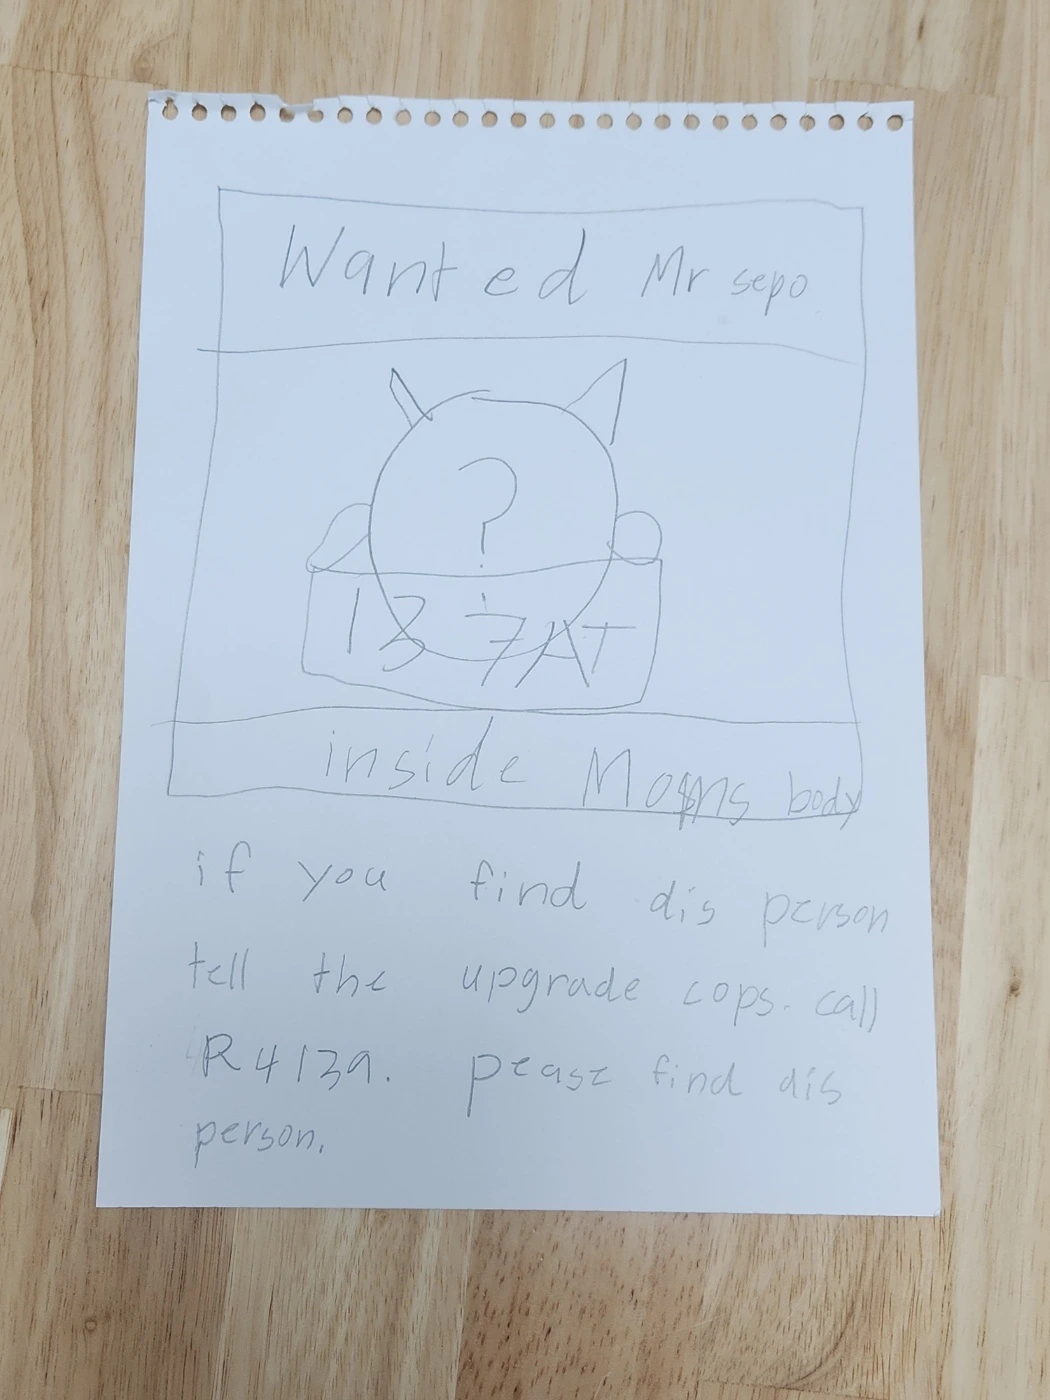 Wanted Mr sepo
?
13 7AT
inside Moms body
if you find dis person
tell the upgrade cops. call
R4139. pease find dis
person.